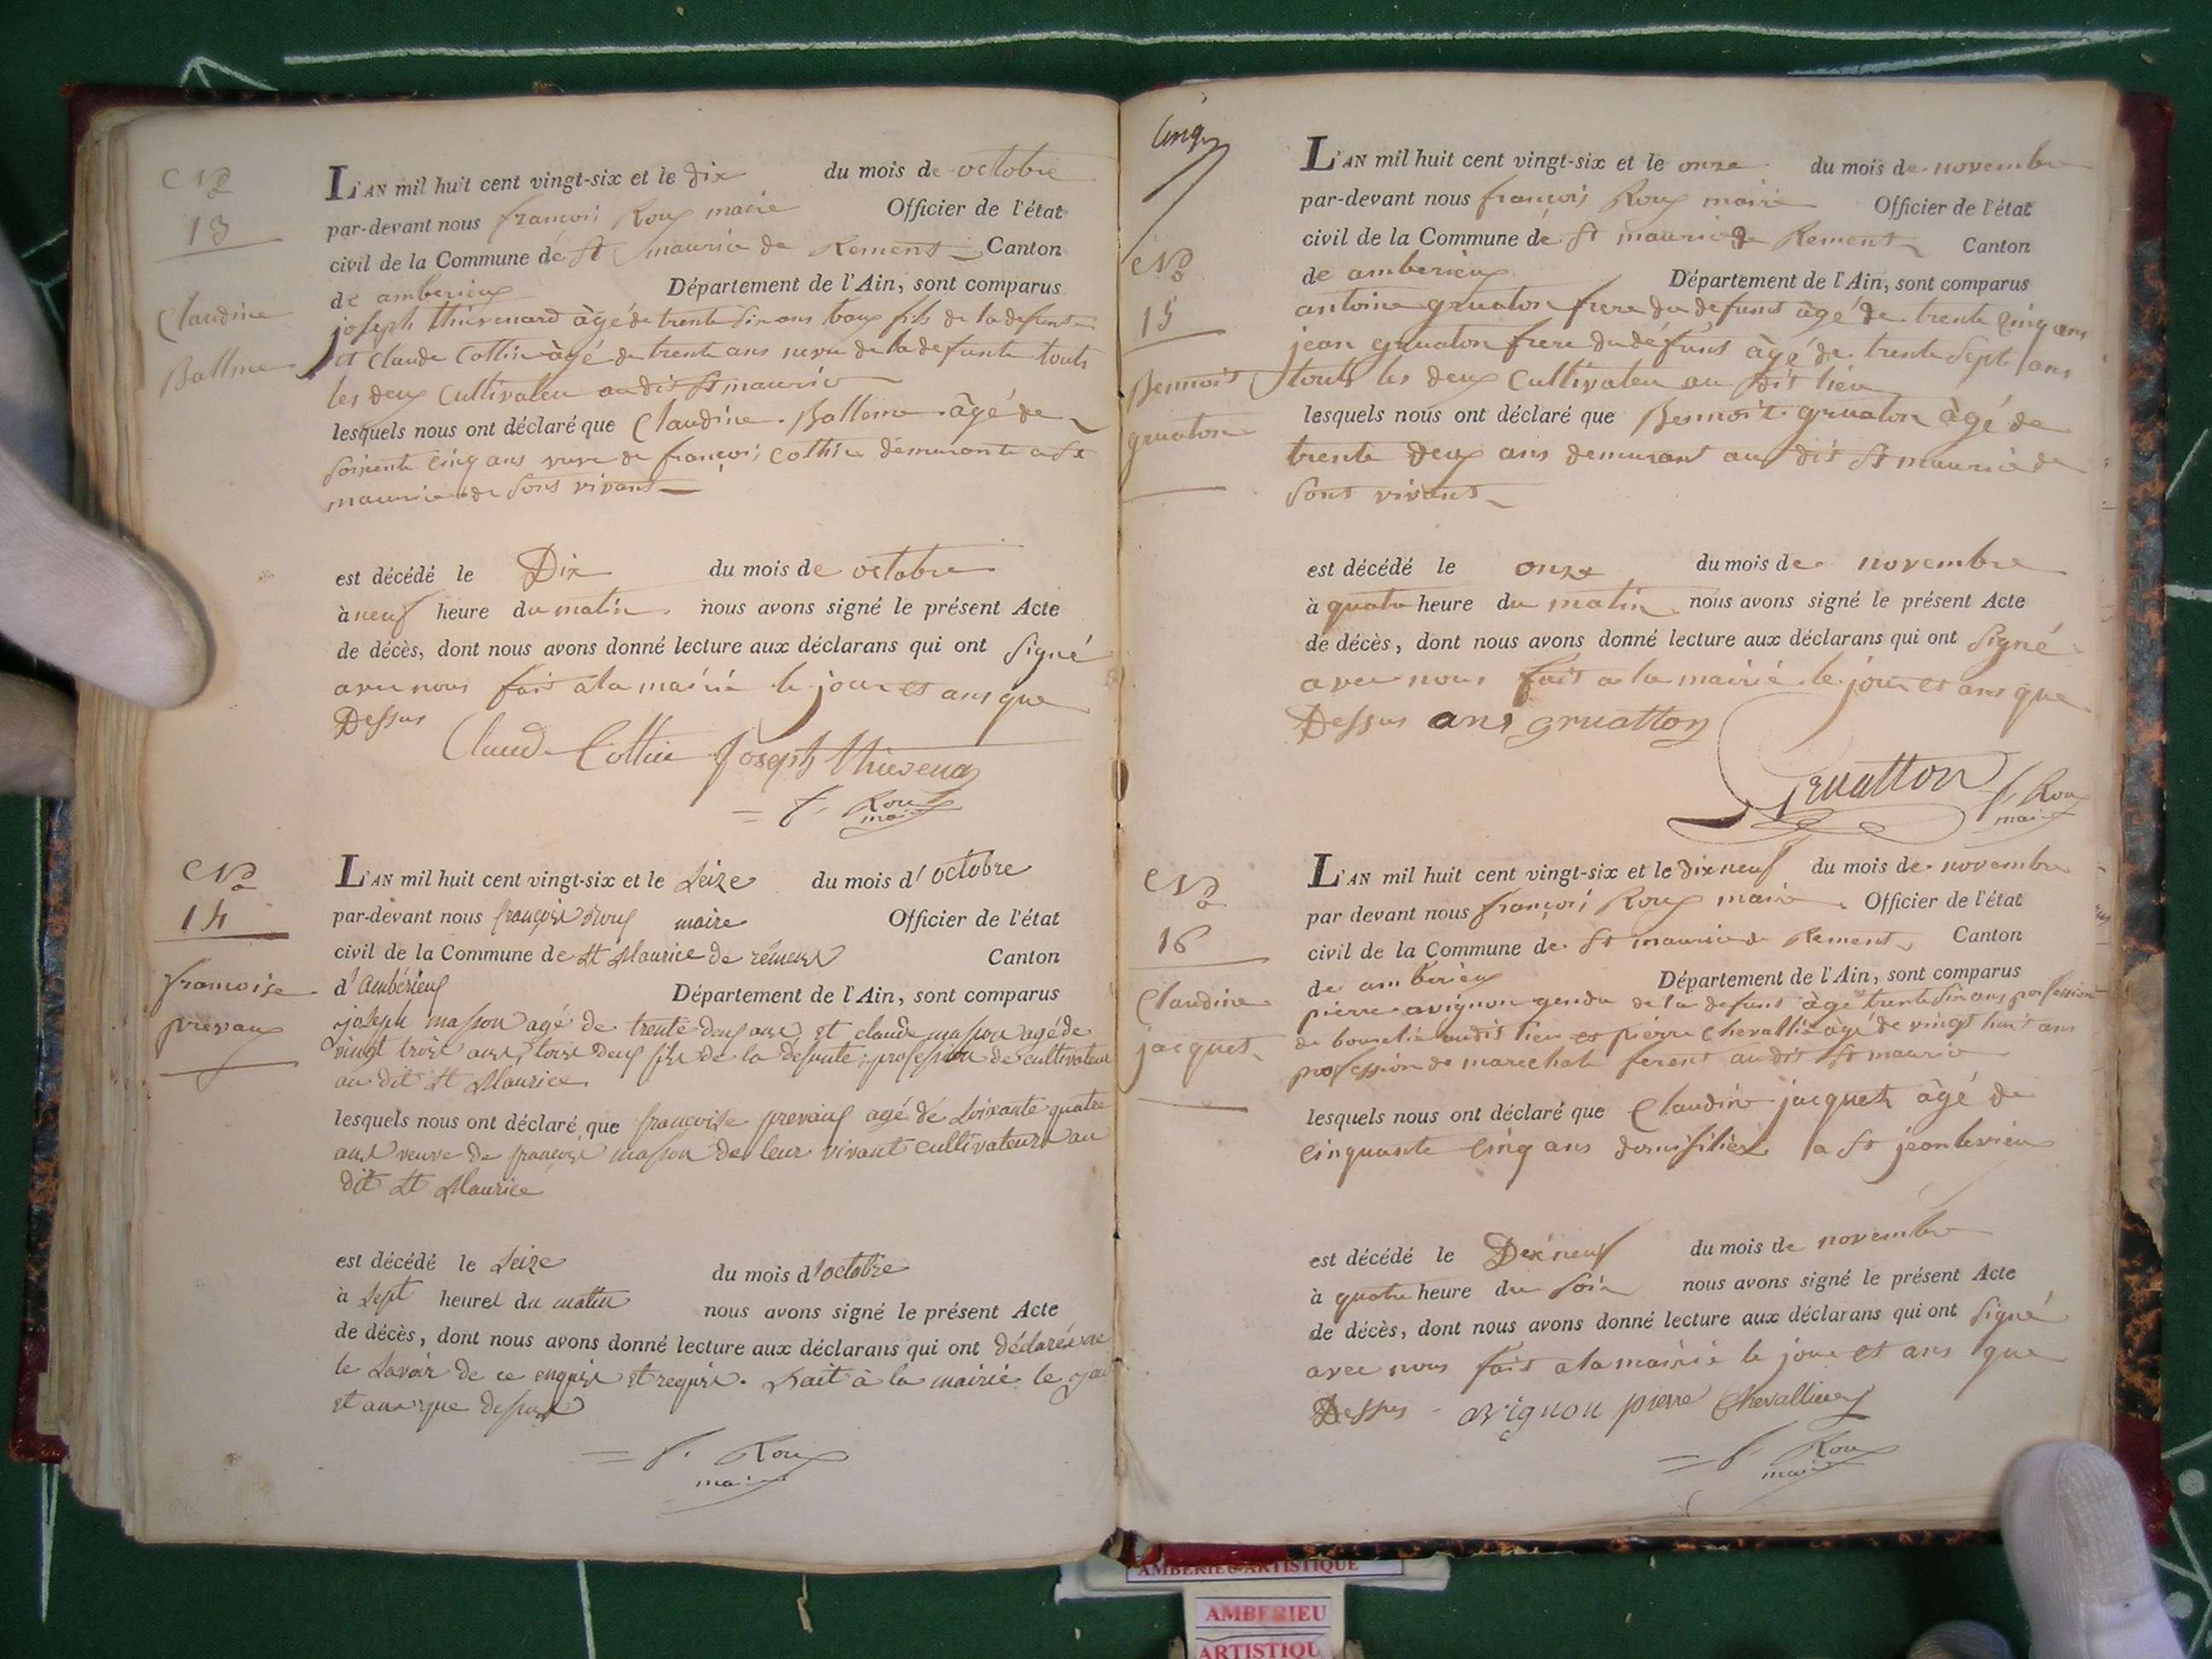 No
13
Claudine
Ballme
L'AN mil huit cent vingt-six et le dix du mois de octobre
par-devant nous françois Roux maire Officier de l'état
civil de la Commune de St maurice de Remens Canton
de amberieux Département de l'Ain, sont comparus
joseph thievenard âgé de trente six ans baux fils de la defunte
et Claude Cottin âgé de trente ans neveu de la defunte touts
les deux Cultivateu audit St maurice
lesquels nous ont déclaré que Claudine Ballme âgé de
soixente cinq ans veuve de françois Cottin demurante a St
maurice de sons vivant
est décédé le Dix du mois de octobre
à neuf heure du matin nous avons signé le présent Acte
de décès, dont nous avons donné lecture aux déclarans qui ont signé
avec nous fait a la mairie le jour et ans que
Dessus
Claude Cottin Joseph thievena
= f. Roux
maire
No
14
francoise
prevaux
L'AN mil huit cent vingt-six et le seize du mois d'octobre
par-devant nous françois Roux maire Officier de l'état
civil de la Commune de St Maurice de rémens Canton
d'ambérieux Département de l'Ain, sont comparus
joseph masson agé de trente deux ans, et claude masson agé de
vingt trois ans, tous deux fils de la defunte; profession de cultivateur
au dit St Maurice
lesquels nous ont déclaré que francoise prevaux agé de soixante quatre
ans veuve de françois masson de leur vivant cultivateurs au
dit St Maurice
est décédé le seize du mois d'octobre
à sept heures du matin nous avons signé le présent Acte
de décès, dont nous avons donné lecture aux déclarans qui ont déclarés ne
le savoir de ce enquis et requis. fait à la mairie le jour
et ans que dessus
= f. Roux
maire
cinq
No
15
Bennoit
gruaton
L'AN mil huit cent vingt-six et le onze du mois de novembre
par-devant nous françois Roux maire Officier de l'état
civil de la Commune de St maurice de Rement Canton
de amberieux Département de l'Ain, sont comparus
antoine gruaton frere du defunt âgé de trente cinq ans
jean gruaton frere du défunt âgé de trente sept ans
touts les deux Cultivateu au dit lieu
lesquels nous ont déclaré que Bennoit gruaton âgé de
trente deux ans demurant au dit St maurice de
sont vivant
est décédé le onze du mois de novembre
à quatre heure du matin nous avons signé le présent Acte
de décès, dont nous avons donné lecture aux déclarans qui ont signé
avec nous fait a la mairie le jour et ans que
Dessus ant gruatton
Gruatton f. Roux
maire
No
16
Claudine
jacquet
L'AN mil huit cent vingt-six et le dix neuf du mois de novembre
par devant nous françois Roux maire Officier de l'état
civil de la Commune de St maurice de Rement Canton
de amberieux Département de l'Ain, sont comparus
pierre avignon gendre de la defunt âgé trente six ans profession
de bourelié audit lieu et pierre Chevallié âgé de vingt huit ans
profession de marechale ferent audit St maurice
lesquels nous ont déclaré que Claudine jacquet âgé de
cinquante cinq ans domisiliéz a St jean levieu
est décédé le Dixneuf du mois de novembre
à quatre heure du soir nous avons signé le présent Acte
de décès, dont nous avons donné lecture aux déclarans qui ont signé
avec nous fait a la mairie le jour et ans que
Dessus avignon pierre Chevallier
= f. Roux
maire
AMBERIEU ARTISTIQUE
AMBERIEU
ARTISTIQU